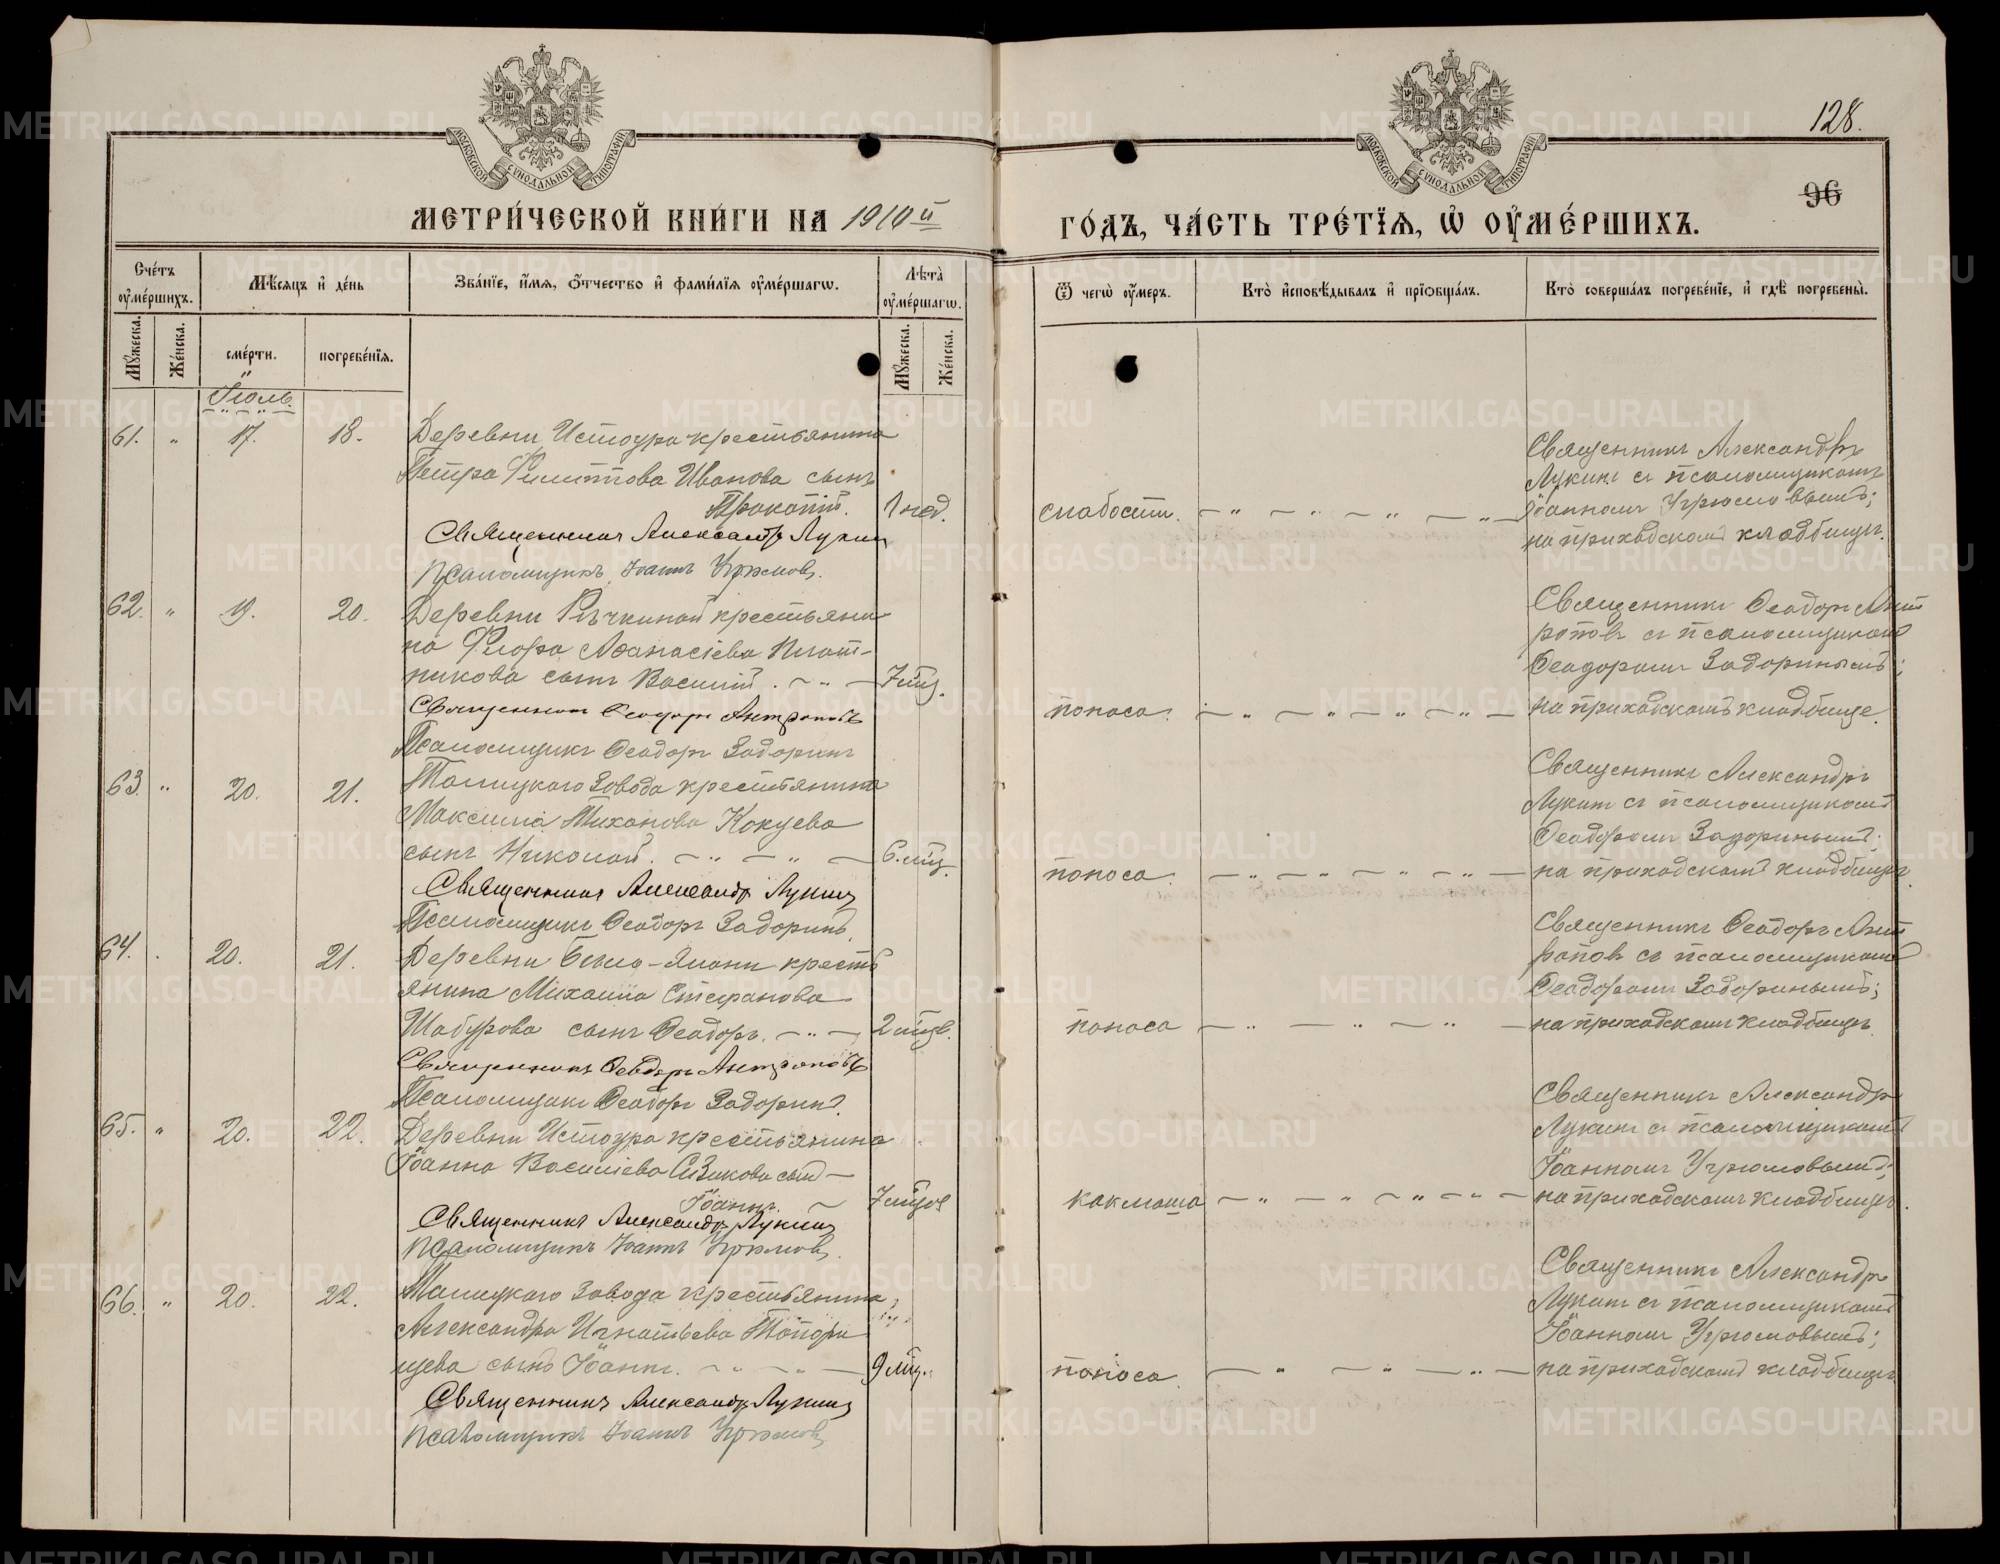 128.
96
МОСКОВСКОЙ СѴНОДАЛЬНОЙ ТИПОГРАФІИ
МОСКОВСКОЙ СѴНОДАЛЬНОЙ ТИПОГРАФІИ
МЕТРИ́ЧЕСКОЙ КНИ́ГИ НА 1910й
ГО́ДЪ, ЧА́СТЬ ТРЕ́ТІѦ, Ѡ҆ ОУ҆МЕ́РШИХЪ.
Сче́тъ оу҆ме́ршихъ.
Мѣ́сяцъ и҆ де́нь
Зва́ніе, и҆́мѧ, ѻ҆́тчество и҆ фами́лїѧ оу҆ме́ршагѡ.
Лѣ́та оу҆ме́ршагѡ.
Ѿ чегѡ̀ оу҆́меръ.
Кто̀ и҆сповѣ́дывалъ и҆ прїѡбща́лъ.
Кто̀ соверша́лъ погребе́нїе, и҆ гдѣ̀ погребены̀.
Мꙋ́жеска.
Же́нска.
сме́рти.
погребе́нїѧ.
Мꙋ́жеска.
Же́нска.
Іюль.
61. " 17. 18. Деревни Истоура крестьянина
Петра Филиппова Иванова сынъ
Прокопій. 1 нед.
Священникъ Александръ Лукинъ
Псаломщикъ Іоаннъ Угрюмовъ.
слабости.
Священникъ Александръ
Лукинъ съ псаломщикомъ
Іоанномъ Угрюмовымъ;
на приходскомъ кладбищѣ.
62. " 19. 20. Деревни Рѣчкиной крестьяни-
на Флора Аѳанасіева Плот-
никова сынъ Василій. 7 мѣц.
Священникъ Ѳеодоръ Антроповъ
Псаломщикъ Ѳеодоръ Задоринъ
поноса.
Священникъ Ѳеодоръ Ант
роповъ съ псаломщикомъ
Ѳеодоромъ Задоринымъ;
на приходскомъ кладбище.
63. " 20. 21. Талицкаго Завода крестьянина
Максима Тиханова Кокуева
сынъ Николай. 6. мѣц.
Священникъ Александръ Лукинъ
Псаломщикъ Ѳеодоръ Задоринъ.
поноса.
Священникъ Александръ
Лукинъ съ псаломщикомъ
Ѳеодоромъ Задоринымъ;
на приходскомъ кладбищѣ.
64. . 20. 21. Деревни Бѣло-Елани кресть
янина Михаила Стефанова
Шабурова сынъ Ѳеодоръ. 2 мѣсв.
Священникъ Ѳеодоръ Антроповъ
Псаломщикъ Ѳеодоръ Задоринъ.
поноса
Священникъ Ѳеодоръ Ант
роповъ съ псаломщикомъ
Ѳеодоромъ Задоринымъ;
на приходскомъ кладбищѣ.
65. " 20. 22. Деревни Истоура крестьянина
Іоанна Василіева Сизикова сынъ
Іоаннъ. 7 мѣцов
Священникъ Александръ Лукинъ
Псаломщикъ Іоаннъ Угрюмовъ.
какмоша
Священникъ Александръ
Лукинъ съ псаломщикомъ
Іоанномъ Угрюмовымъ;
на приходскомъ кладбищѣ.
66. " 20. 22. Талицкаго Завода крестьянина
Александра Игнатьева Топор
ищева сынъ Іоаннъ. 9 мѣц.
Священникъ Александръ Лукинъ
Псаломщикъ Іоаннъ Угрюмовъ
поноса
Священникъ Александръ
Лукинъ съ псаломщикомъ
Іоанномъ Угрюмовымъ;
на приходскомъ кладбищѣ
METRIKI.GASO-URAL.RU